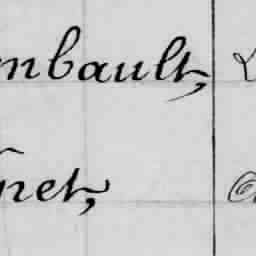 mbault,
net,